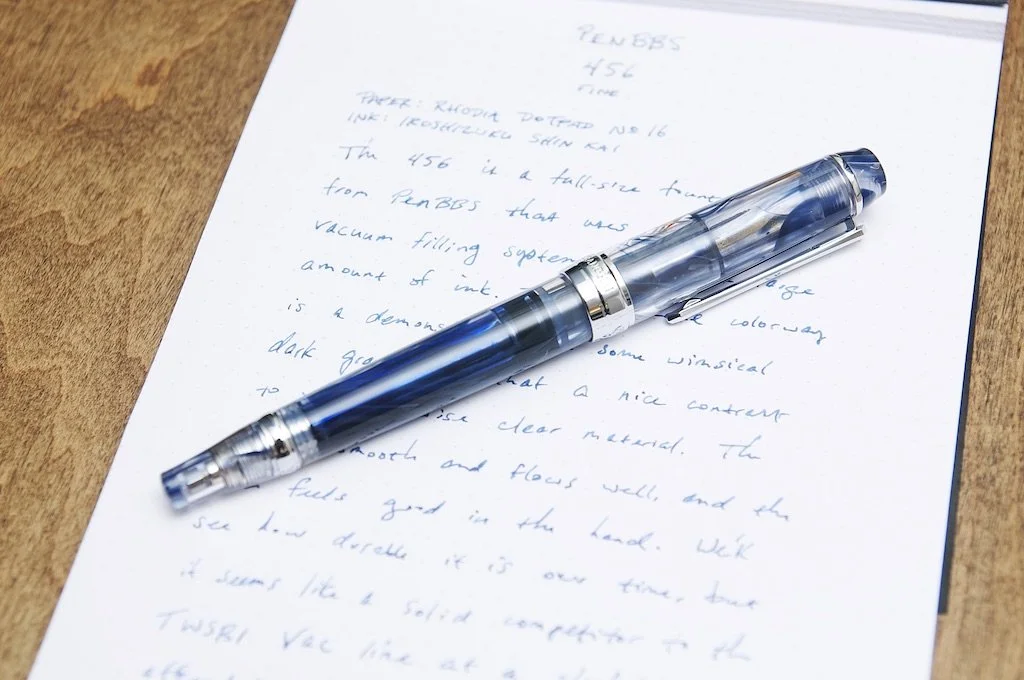 PENBBS
456
FINE
PAPER: RHODIA DOTPAD NO 16
INK: IROSHIZUKU SHIN KAI
The 456 is a full-size
from PenBBS that uses
vacuum filling system
amount of ink. large
is a colorway
dark some wimsical
to that a nice contrast
clear material. The
smooth and flows well, and the
feels good in the hand. We'll
see how durable it is over time, but
it seems like a solid competitor to the
TWSBI Vac line at a